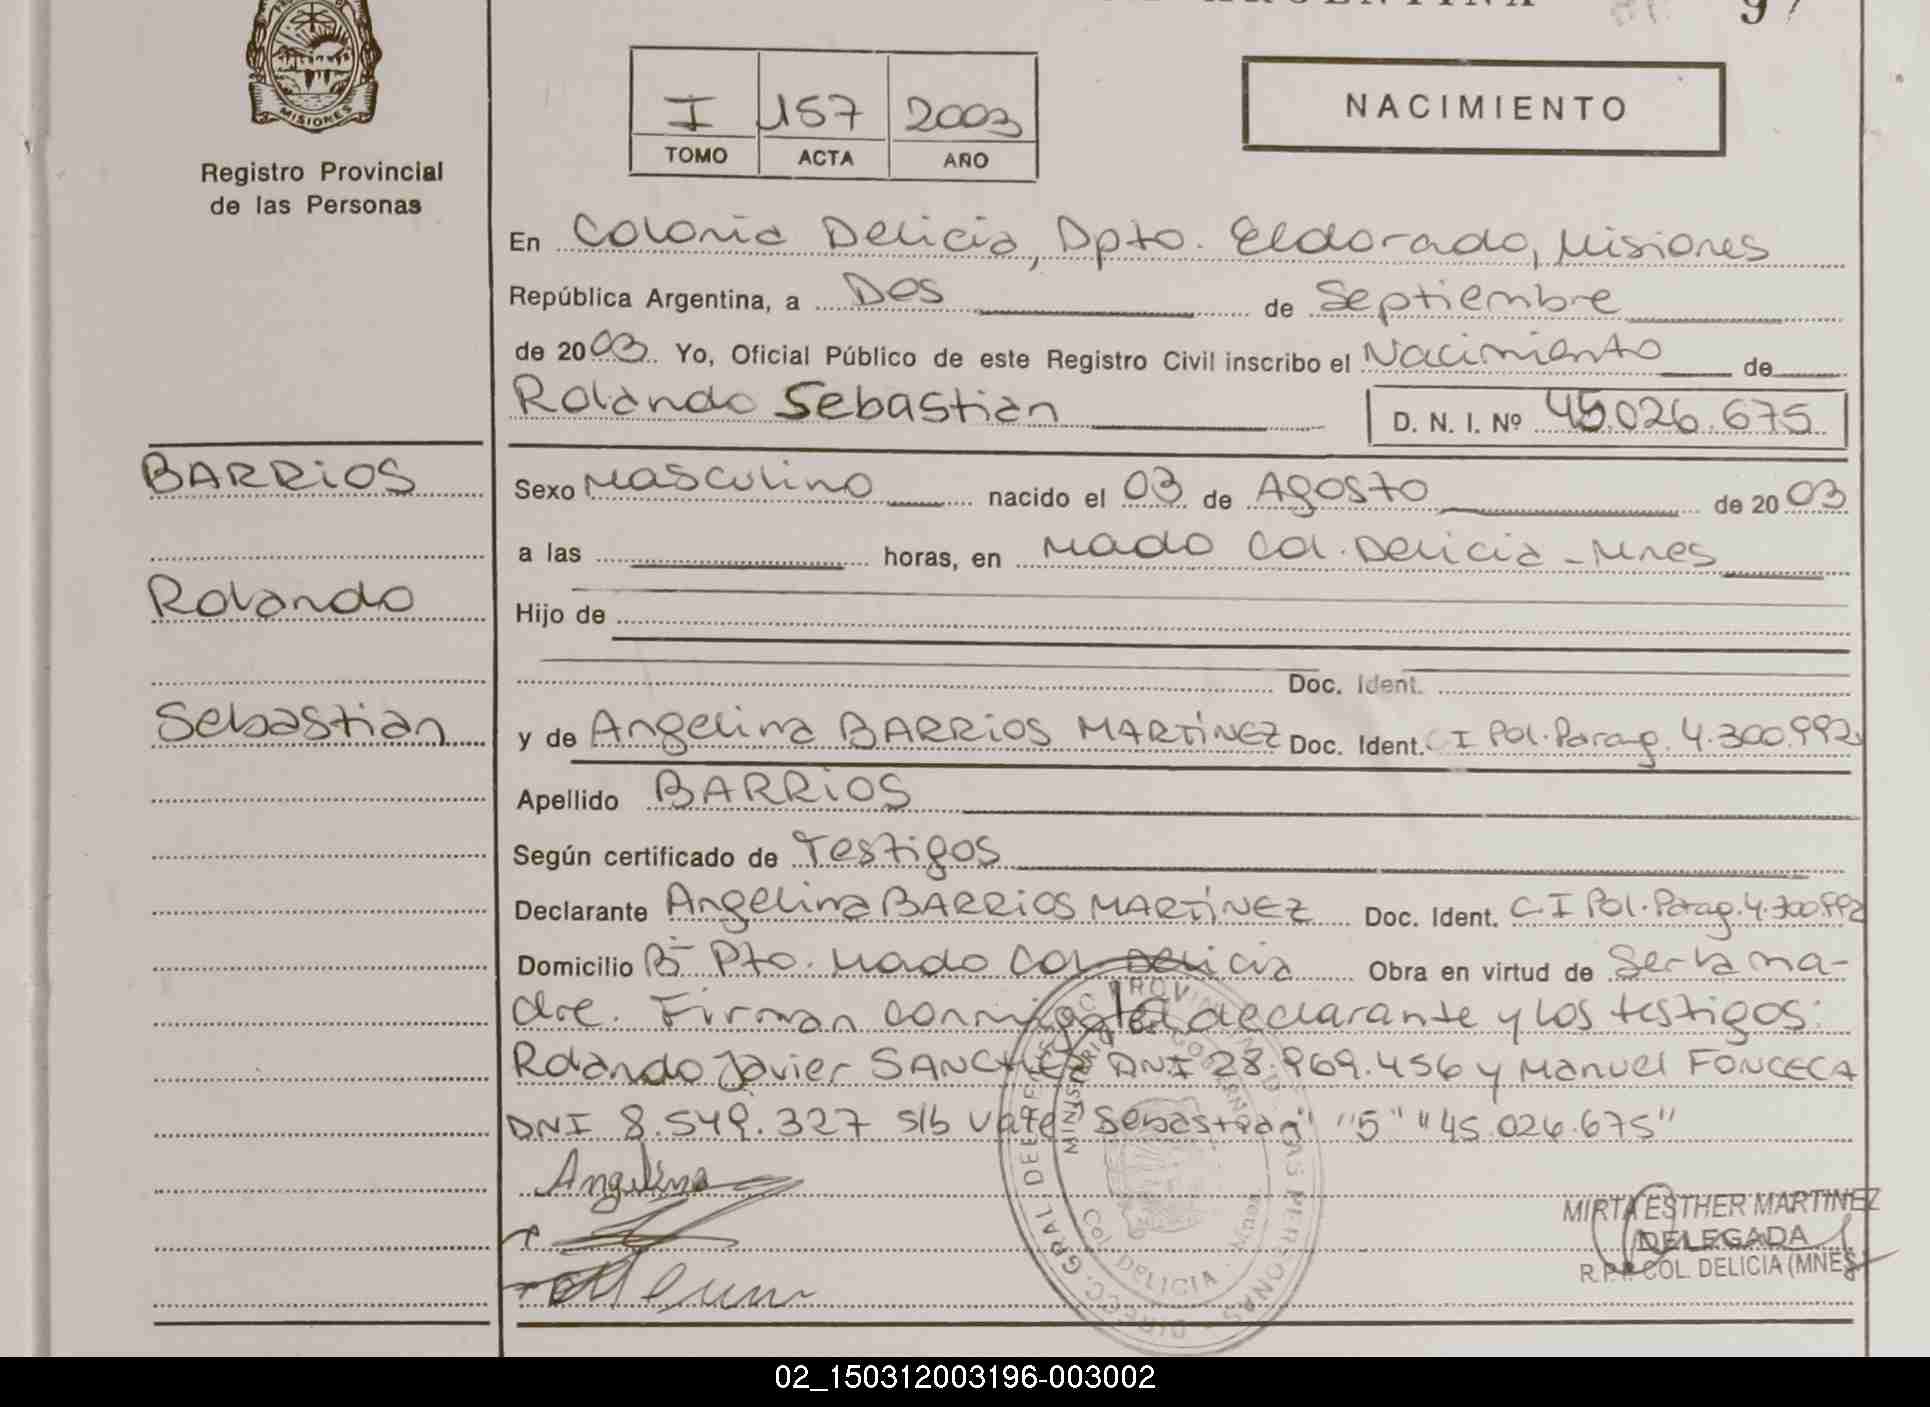 ARGENTINA 97
MISIONES
Registro Provincial
de las Personas
I 157 2003
TOMO ACTA AÑO
NACIMIENTO
En Colonia Delicia, Dpto. Eldorado, Misiones
República Argentina, a Dos de Septiembre
de 2003. Yo, Oficial Público de este Registro Civil inscribo el Nacimiento de
Rolando Sebastian D. N. I. Nº 45.026.675
BARRiOS
Rolando
Sebastian
Sexo Masculino nacido el 03 de Agosto de 2003
a las horas, en Mado Col. Delicia - Mnes
Hijo de
Doc. Ident.
y de Angelina BARRiOS MARTÍNEZ Doc. Ident. C I Pol. Parag. 4.300.992
Apellido BARRiOS
Según certificado de Testigos
Declarante Angelina BARRiOS MARTÍNEZ Doc. Ident. C.I Pol. Parag. 4.300.992
Domicilio Bº Pto. Mado Col Delicia Obra en virtud de Ser la ma-
dre. Firman conmigo la declarante y los testigos:
Rolando Javier SANCHEZ DNI 28.969.456 y Manuel FONCECA
DNI 8.549.327 s/b vale "Sebastian" "5" "45.026.675"
Angelina
DIRECC. GRAL DEL REGISTRO PROVINCIAL DE LAS PERSONAS
MINISTERIO GOBIERNO
Col DELICIA - Mnes.
MIRTA ESTHER MARTINEZ
DELEGADA
R.P.P. COL. DELICIA (MNES)
02_150312003196-003002